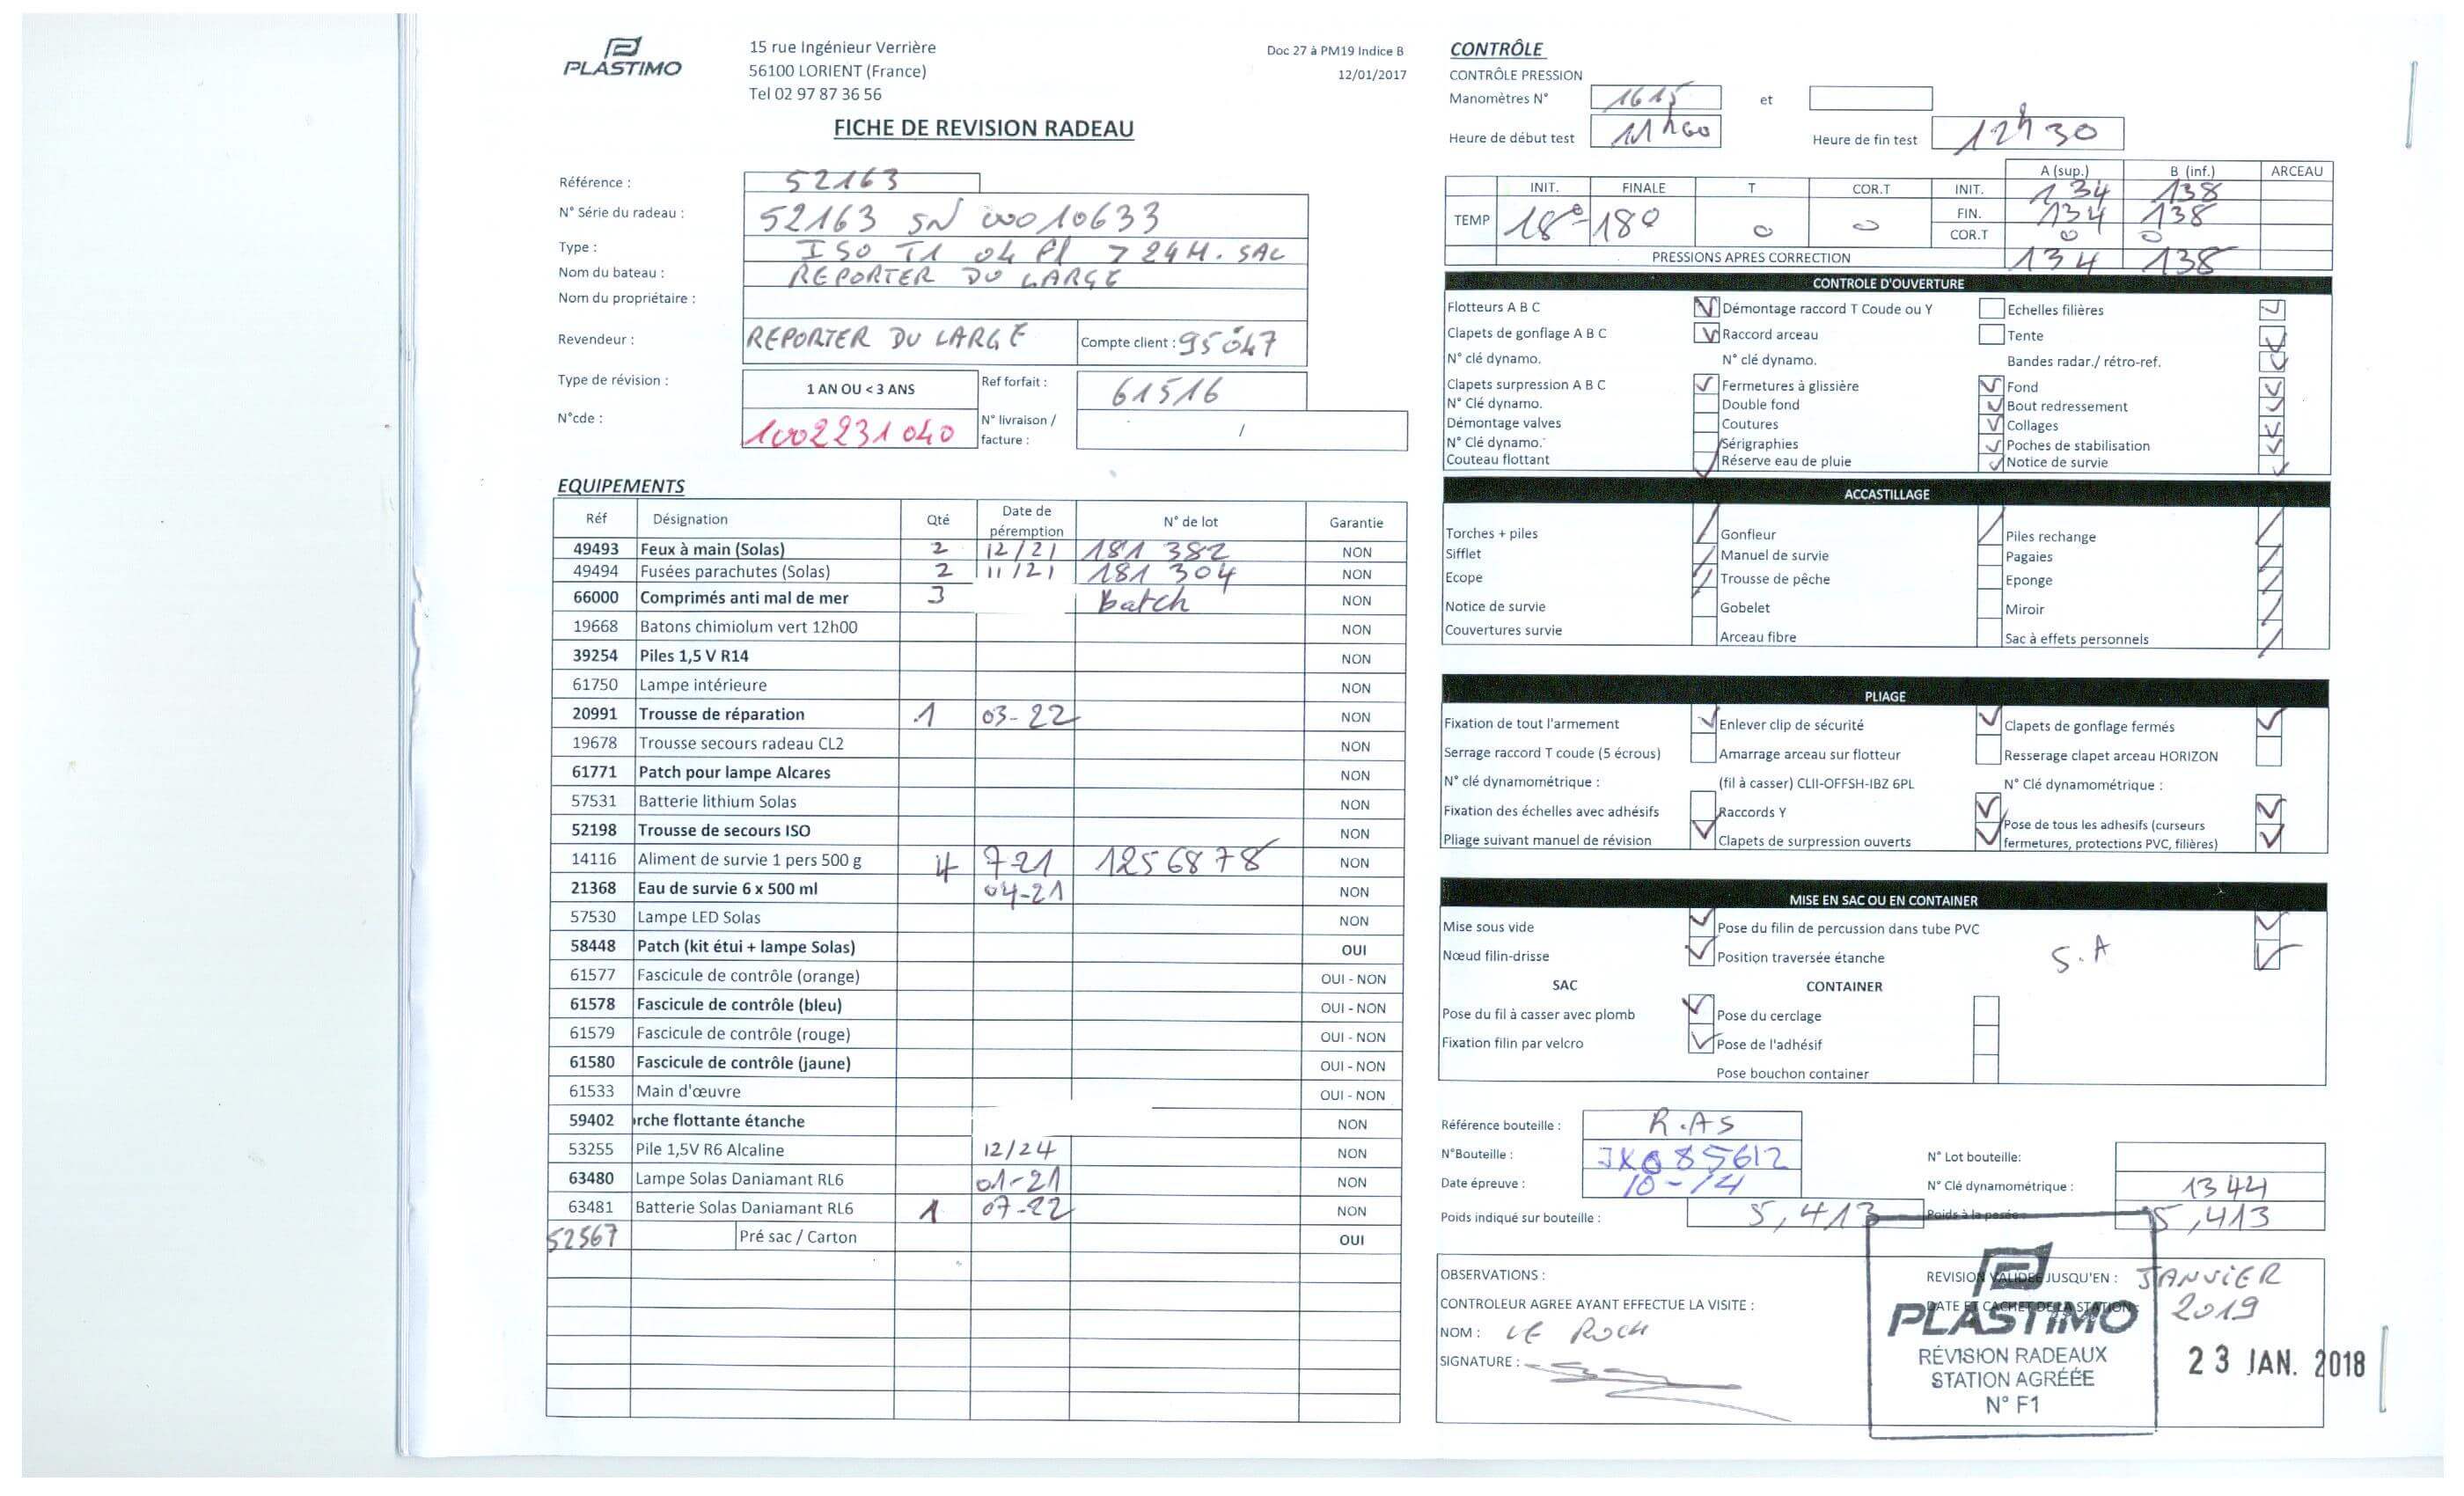 PLASTIMO
15 rue Ingénieur Verrière
56100 LORIENT (France)
Tel 02 97 87 36 56
Doc 27 à PM19 Indice B
12/01/2017
FICHE DE REVISION RADEAU
Référence : 52163
N° Série du radeau : 52163 SN 00010633
Type : ISO T1 04 Pl > 24H. SAC
Nom du bateau : REPORTER DU LARGE
Nom du propriétaire :
Revendeur : REPORTER DU LARGE Compte client : 95047
Type de révision : 1 AN OU < 3 ANS Ref forfait : 61516
N°cde : 1002231040 N° livraison / facture : /
EQUIPEMENTS
Réf Désignation Qté Date de péremption N° de lot Garantie
49493 Feux à main (Solas) 2 12/21 181 382 NON
49494 Fusées parachutes (Solas) 2 11/21 181 304 NON
66000 Comprimés anti mal de mer 3 Batch NON
19668 Batons chimiolum vert 12h00 NON
39254 Piles 1,5 V R14 NON
61750 Lampe intérieure NON
20991 Trousse de réparation 1 03-22 NON
19678 Trousse secours radeau CL2 NON
61771 Patch pour lampe Alcares NON
57531 Batterie lithium Solas NON
52198 Trousse de secours ISO NON
14116 Aliment de survie 1 pers 500 g 4 7-21 1256878 NON
21368 Eau de survie 6 x 500 ml 04-21 NON
57530 Lampe LED Solas NON
58448 Patch (kit étui + lampe Solas) OUI
61577 Fascicule de contrôle (orange) OUI - NON
61578 Fascicule de contrôle (bleu) OUI - NON
61579 Fascicule de contrôle (rouge) OUI - NON
61580 Fascicule de contrôle (jaune) OUI - NON
61533 Main d'œuvre OUI - NON
59402 rche flottante étanche NON
53255 Pile 1,5V R6 Alcaline 12/24 NON
63480 Lampe Solas Daniamant RL6 01-21 NON
63481 Batterie Solas Daniamant RL6 1 07-22 NON
52567 Pré sac / Carton OUI
CONTRÔLE
CONTRÔLE PRESSION
Manomètres N° 1615 et
Heure de début test 11h00 Heure de fin test 12h30
A (sup.) B (inf.) ARCEAU
INIT. FINALE T COR.T INIT. 134 138
TEMP 18° 18° 0 0 FIN. 134 138
COR.T 0 0
PRESSIONS APRES CORRECTION 134 138
CONTROLE D'OUVERTURE
Flotteurs A B C Démontage raccord T Coude ou Y Echelles filières
Clapets de gonflage A B C Raccord arceau Tente
N° clé dynamo. N° clé dynamo. Bandes radar./ rétro-ref.
Clapets surpression A B C Fermetures à glissière Fond
N° Clé dynamo. Double fond Bout redressement
Démontage valves Coutures Collages
N° Clé dynamo. Sérigraphies Poches de stabilisation
Couteau flottant Réserve eau de pluie Notice de survie
ACCASTILLAGE
Torches + piles Gonfleur Piles rechange
Sifflet Manuel de survie Pagaies
Ecope Trousse de pêche Eponge
Notice de survie Gobelet Miroir
Couvertures survie Arceau fibre Sac à effets personnels
PLIAGE
Fixation de tout l'armement Enlever clip de sécurité Clapets de gonflage fermés
Serrage raccord T coude (5 écrous) Amarrage arceau sur flotteur Resserage clapet arceau HORIZON
N° clé dynamométrique : (fil à casser) CLII-OFFSH-IBZ 6PL N° Clé dynamométrique :
Fixation des échelles avec adhésifs Raccords Y Pose de tous les adhesifs (curseurs
Pliage suivant manuel de révision Clapets de surpression ouverts fermetures, protections PVC, filières)
MISE EN SAC OU EN CONTAINER
Mise sous vide Pose du filin de percussion dans tube PVC
Nœud filin-drisse Position traversée étanche S.A
SAC CONTAINER
Pose du fil à casser avec plomb Pose du cerclage
Fixation filin par velcro Pose de l'adhésif
Pose bouchon container
Référence bouteille : R.AS
N°Bouteille : JX085612 N° Lot bouteille:
Date épreuve : 10-14 N° Clé dynamométrique : 1344
Poids indiqué sur bouteille : 5,413 Poids à la pesée : 5,413
OBSERVATIONS : REVISION VALIDEE JUSQU'EN : JANVIER 2019
CONTROLEUR AGREE AYANT EFFECTUE LA VISITE : DATE ET CACHET DE LA STATION :
NOM : LE ROCH
SIGNATURE :
PLASTIMO
RÉVISION RADEAUX
STATION AGRÉÉE
N° F1
23 JAN. 2018